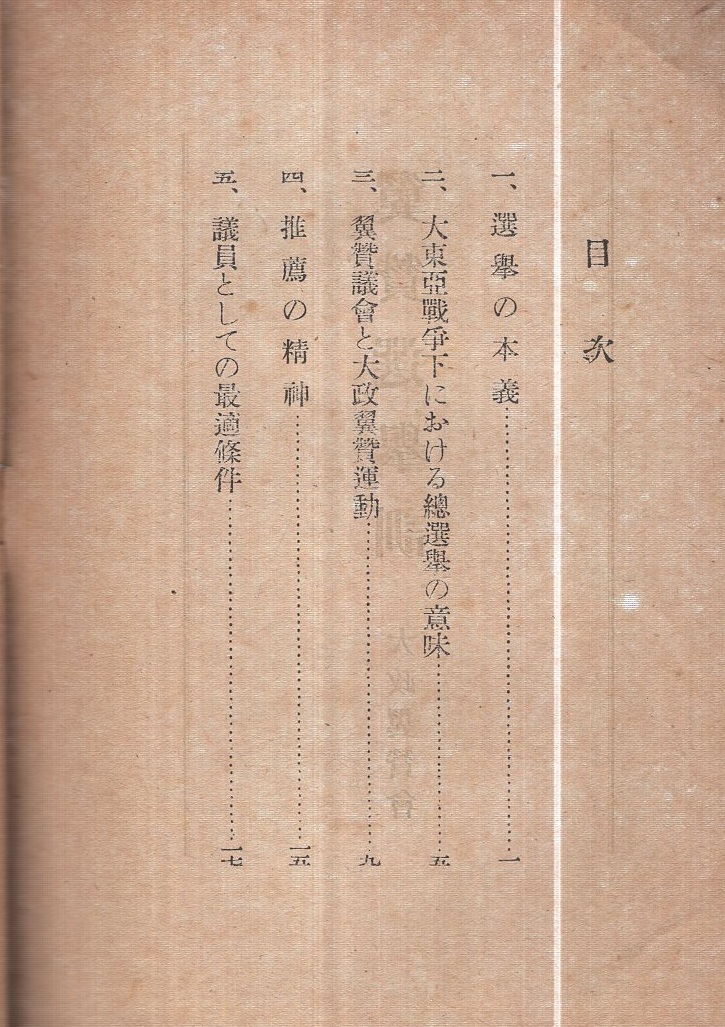 目次
一、選擧の本義……………一
二、大東亞戰爭下における總選擧の意味……………五
三、翼贊議會と大政翼贊運動……………九
四、推薦の精神……………一五
五、議員としての最適條件……………一七